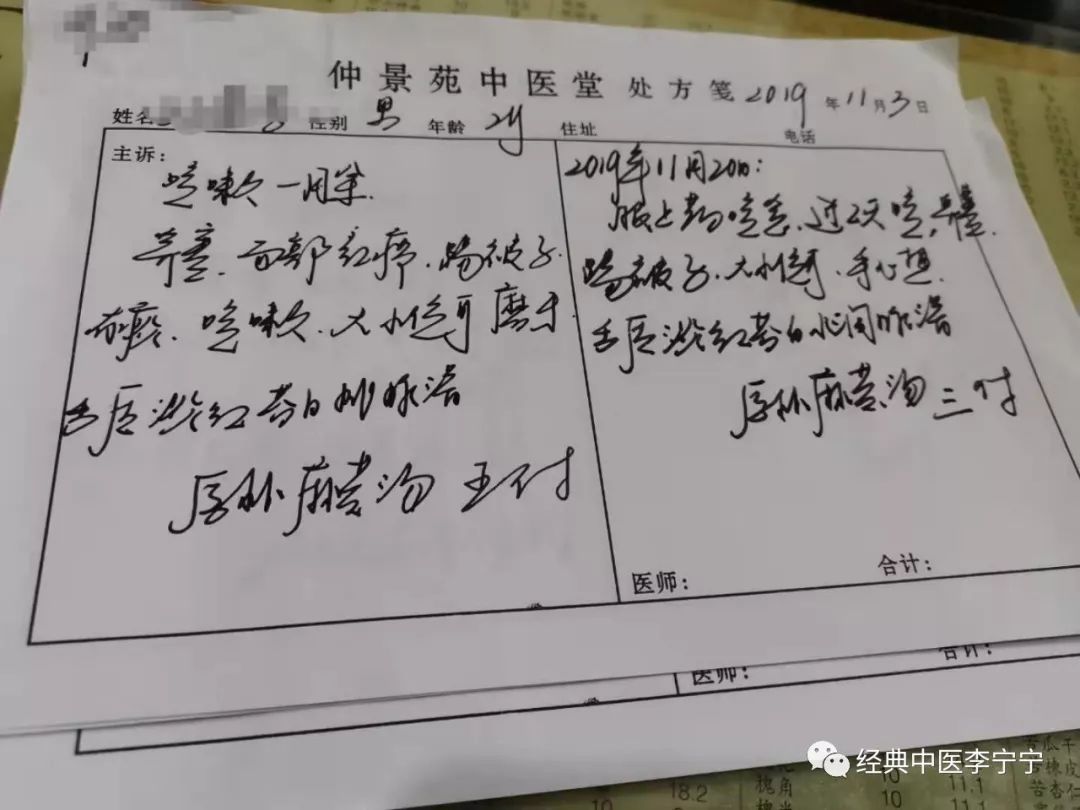 仲景苑中医堂 处方笺 2019年11月3日
姓名 性别 男 年龄 2岁 住址 电话
主诉：
咳嗽一周余.
鼻塞.面部红疹.踢被子.
有痰.咳嗽.大小便可 磨牙
舌质淡红苔白 脉浮滑
厚朴麻黄汤 五付
2019年11月20日：
服上药咳愈.过2天咳,鼻塞.
踢被子.大小便可.手心热.
舌质淡红苔白 脉滑
厚朴麻黄汤 三付
医师： 合计：
医师： 合计：
槐角
18.2
10
11.1
苦杏仁
经典中医李宁宁